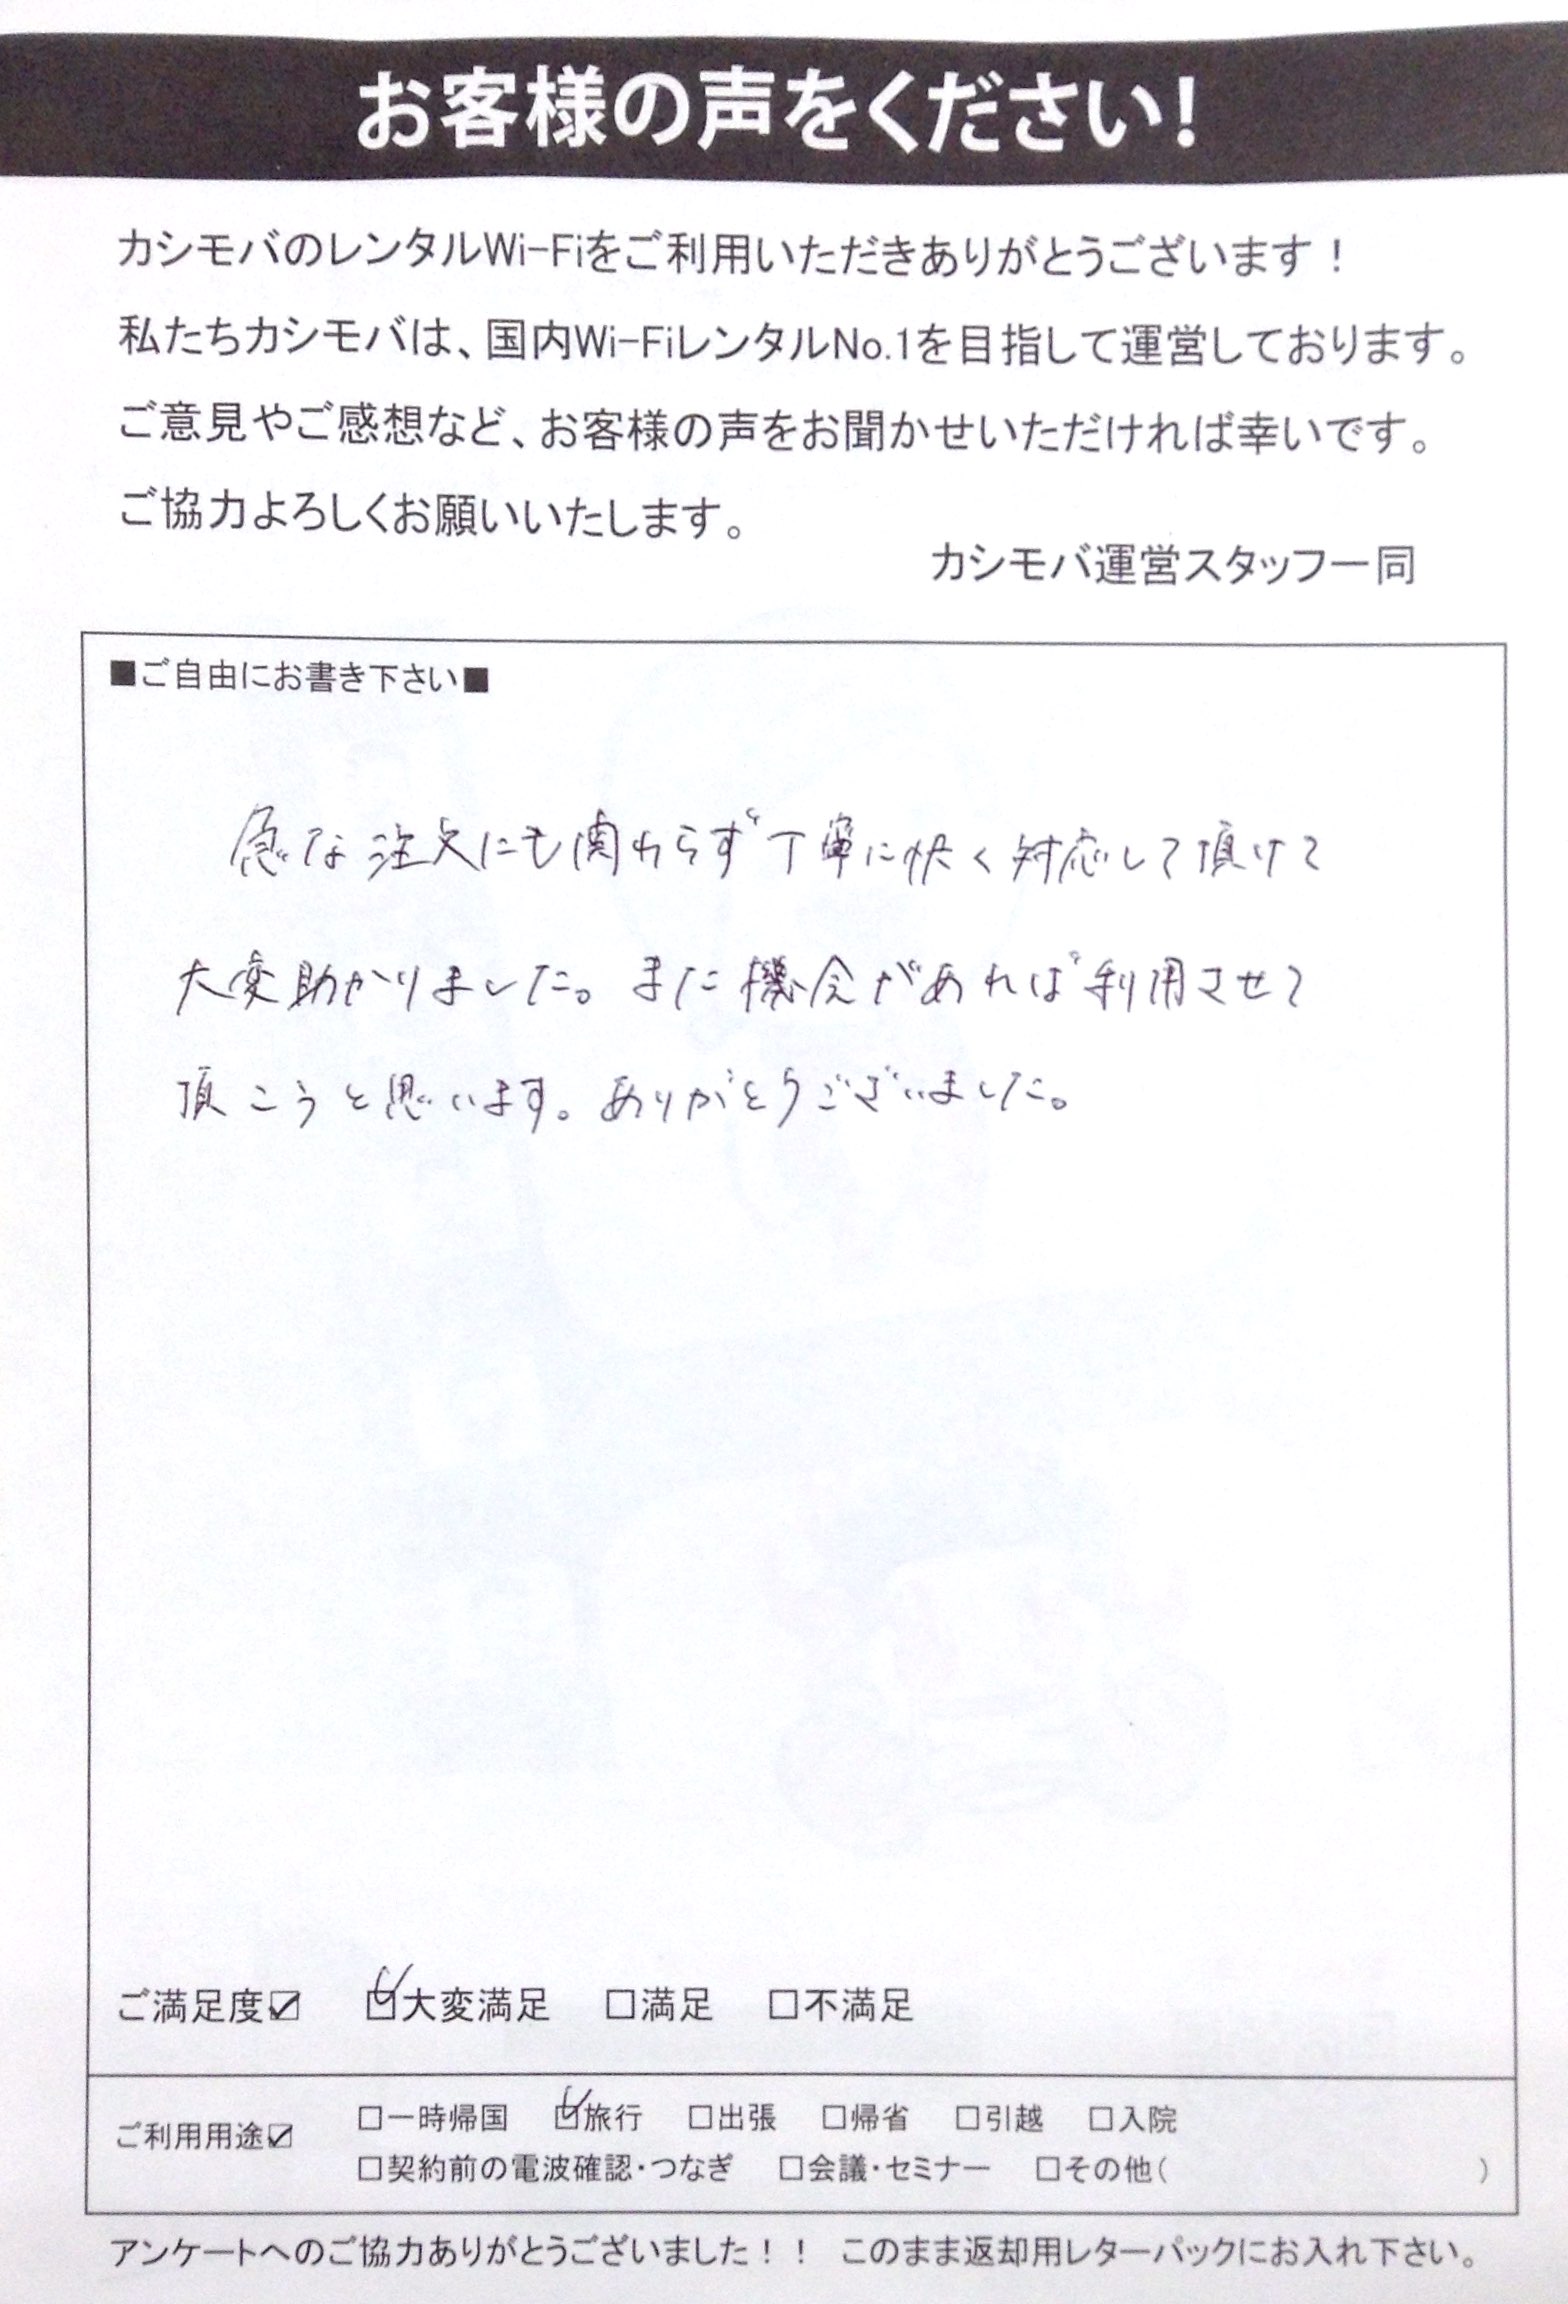 お客様の声をください!
カシモバのレンタルWi-Fiをご利用いただきありがとうございます！
私たちカシモバは、国内Wi-FiレンタルNo.1を目指して運営しております。
ご意見やご感想など、お客様の声をお聞かせいただければ幸いです。
ご協力よろしくお願いいたします。
カシモバ運営スタッフ一同
■ご自由にお書き下さい■
急な注文にも関わらず丁寧に快く対応して頂けて
大変助かりました。また機会があれば利用させて
頂こうと思います。ありがとうございました。
ご満足度☑ ☑大変満足 □満足 □不満足
ご利用用途☑ □一時帰国 ☑旅行 □出張 □帰省 □引越 □入院
□契約前の電波確認・つなぎ □会議・セミナー □その他( )
アンケートへのご協力ありがとうございました！！ このまま返却用レターパックにお入れ下さい。